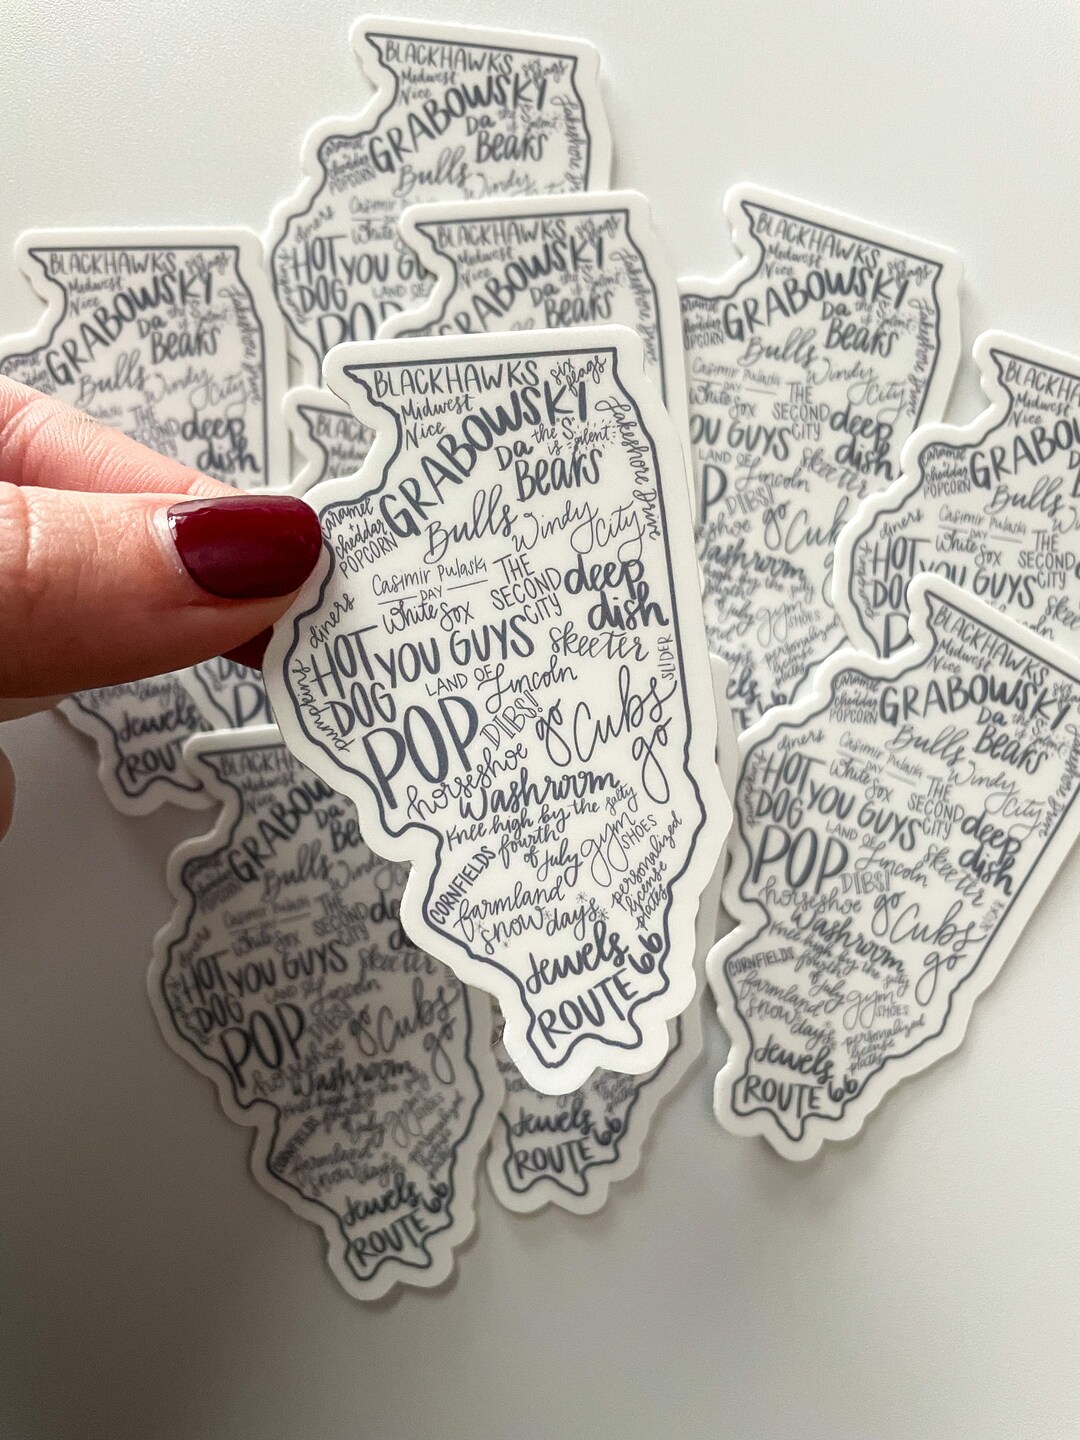 BLACKHAWKS
six flags
Midwest Nice
GRABOWSKY
the "S" is silent
Lakeshore Drive
Da Bears
caramel + cheddar POPCORN
Bulls
Windy City
Casimir Pulaski DAY
THE SECOND CITY
deep dish
diners
White Sox
HOT DOG
YOU GUYS
skeeter
pumpkins
LAND OF Lincoln
SLIDER
POP
DIBS!
go Cubs go
horseshoe
Washroom
Knee high by the fourth of July
salty
gym SHOES
CORNFIELDS
personalized license plates
farmland
snow days
Jewels
ROUTE 66